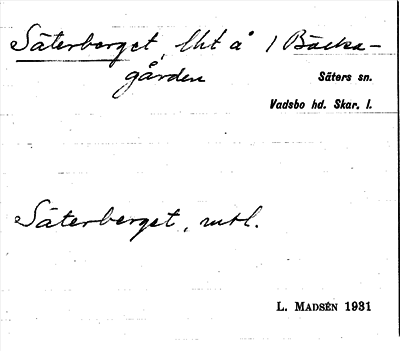 Säterberget, lht å 1 Backa-
gården
Säters sn.
Vadsbo hd. Skar. l.
Säterberget, mtl.
L. MADSÉN 1931